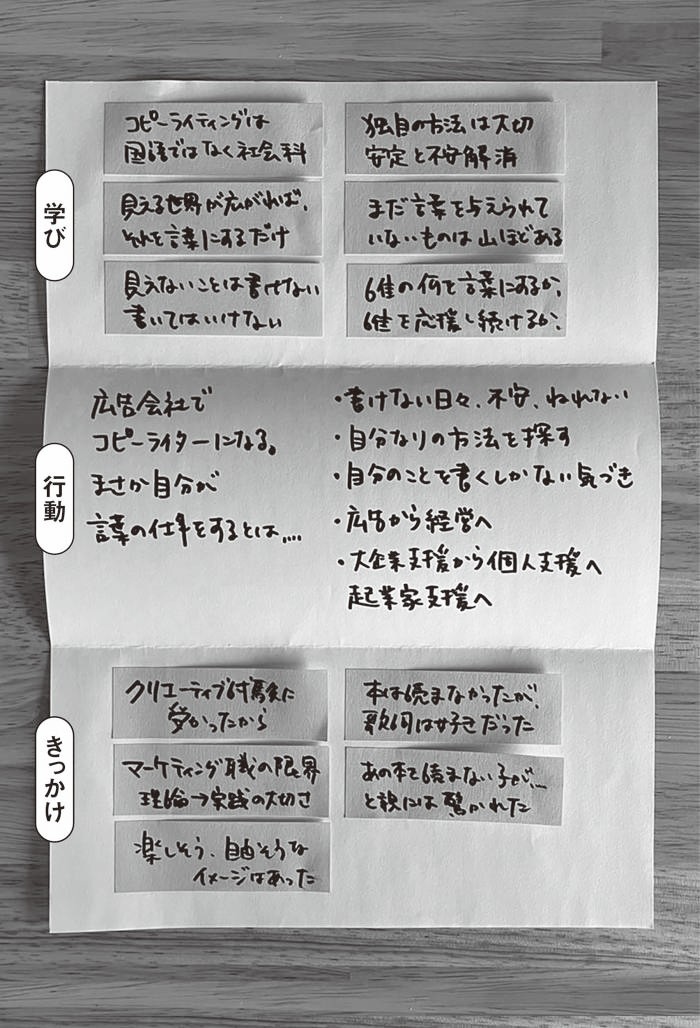 学び
コピーライティングは
国語ではなく社会科
見える世界が広がれば、
それを言葉にするだけ
見えないことは書けない
書いてはいけない
独自の方法は大切
安定と不安解消
まだ言葉を与えられて
いないものは山ほどある
誰の何を言葉にするか、
誰を応援し続けるか、
行動
広告会社で
コピーライターになる。
まさか自分が
言葉の仕事をするとは....
・書けない日々、不安、ねれない
・自分なりの方法を探す
・自分のことを書くしかない気づき
・広告から経営へ
・大企業支援から個人支援へ
起業家支援へ
きっかけ
クリエーティブ試験に
受かったから
マーケティング職の限界
理論→実践の大切さ
楽しそう、自由そうな
イメージはあった
本は読まなかったが、
歌詞は好きだった
あの本を読まない子が...
と親には驚かれた